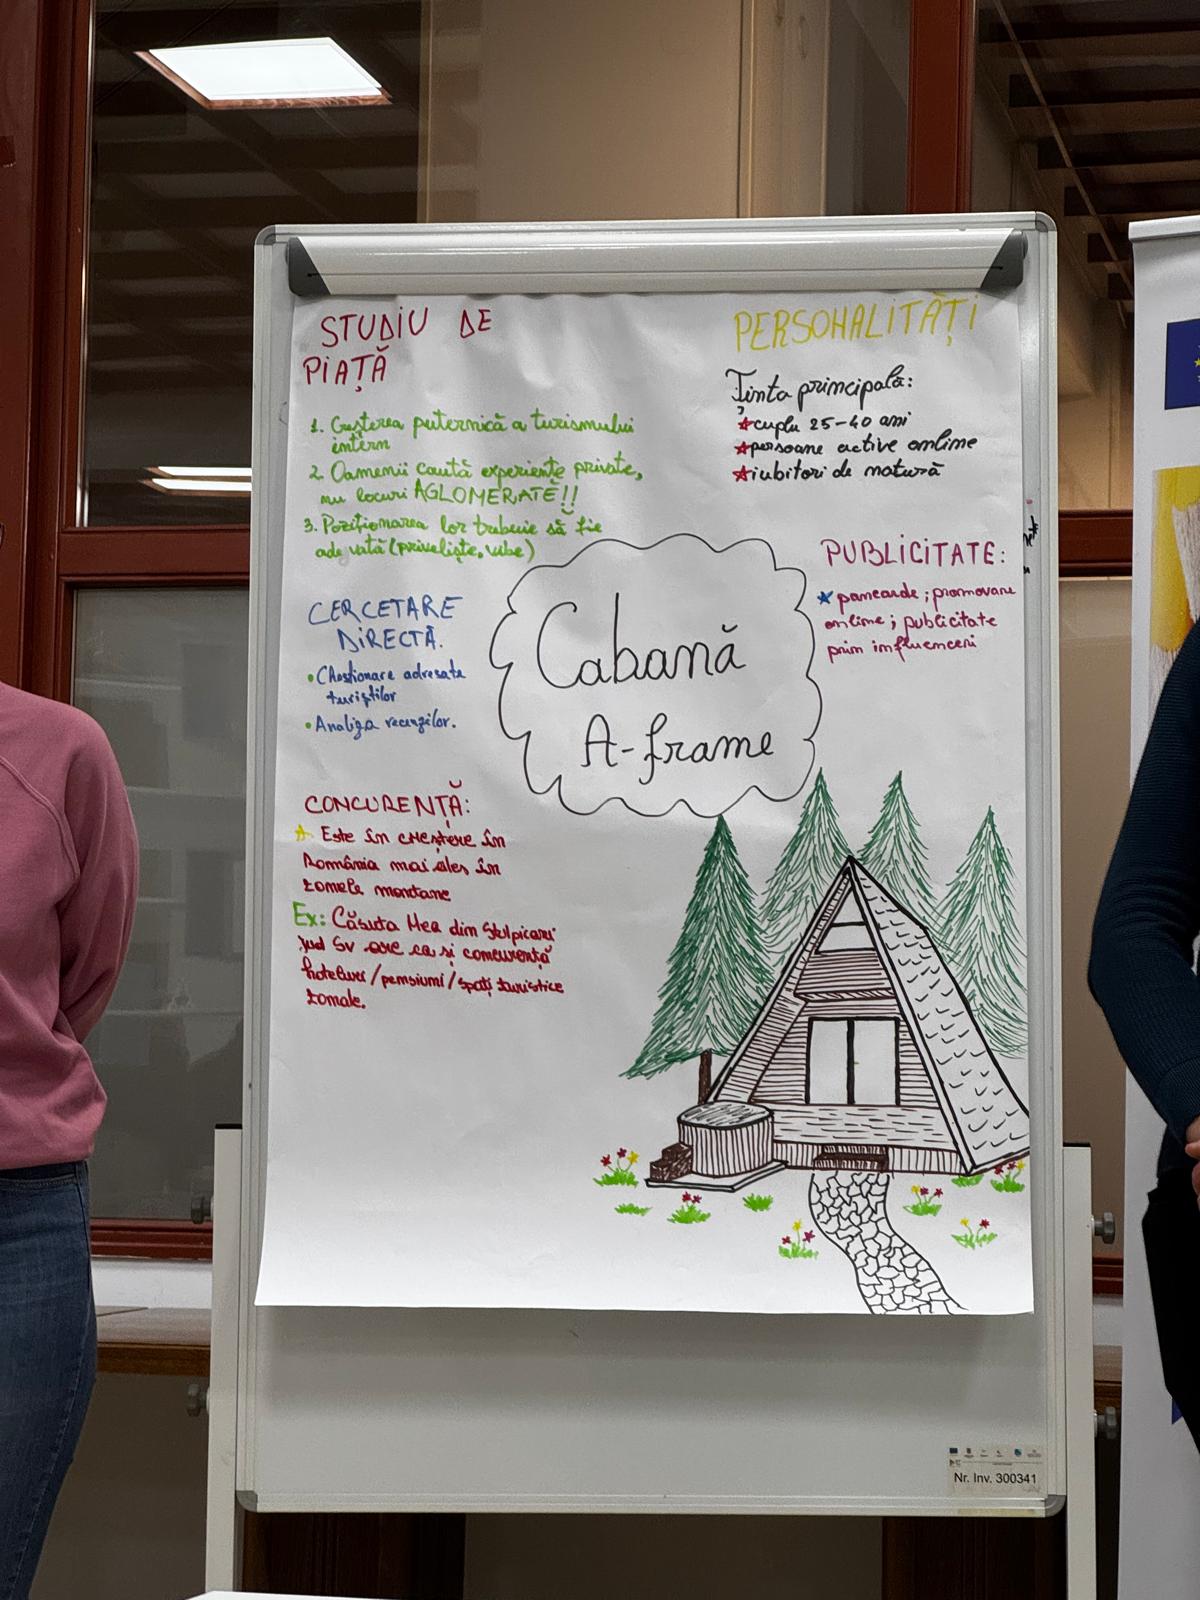 STUDIU DE
PIAȚĂ
1. Creșterea puternică a turismului
intern
2. Oamenii caută experiențe private,
nu locuri AGLOMERATE!!
3. Poziționarea lor trebuie să fie
ade vată (priveliște, vibe)
CERCETARE
DIRECTĂ.
• Chestionare adresate
turiștilor
• Analiza recenziilor.
CONCURENȚĂ:
Este în creștere în
România mai ales în
zonele montane
Ex: Căsuța Mea din Stulpicani
jud SV are ca și concurență
hoteluri/pensiuni/spații turistice
zonale.
Cabană
A-frame
PERSONALITĂȚI
Ținta principală:
cuplu 25-40 ani
persoane active online
iubitori de natură
PUBLICITATE:
pancarde; promovare
online; publicitate
prin influenceri
Nr. Inv. 300341